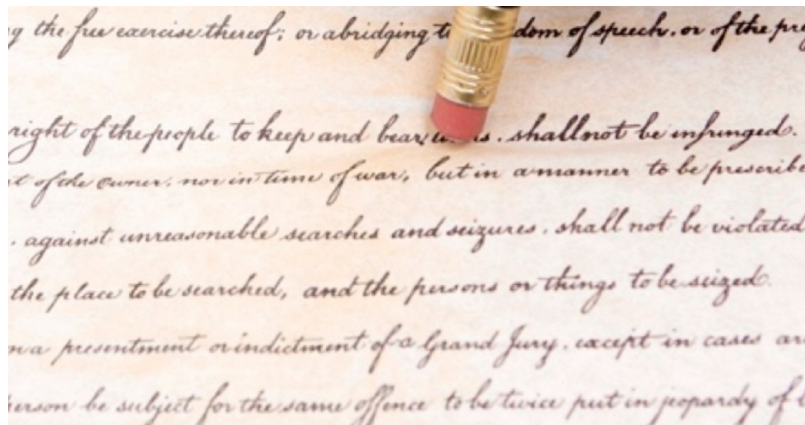 the free exercise thereof; or abridging dom of speech, or of the
right of the people to keep and bear s, shall not be infringed.
of the Owner, nor in time of war, but in a manner to be prescribe
, against unreasonable searches and seizures, shall not be violated
the place to be searched, and the persons or things to be seized.
on a presentment or indictment of a Grand Jury, except in cases
erson be subject for the same offence to be twice put in jeopardy of